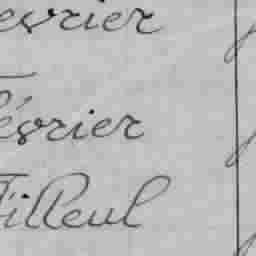 evrier
Février
Filleul